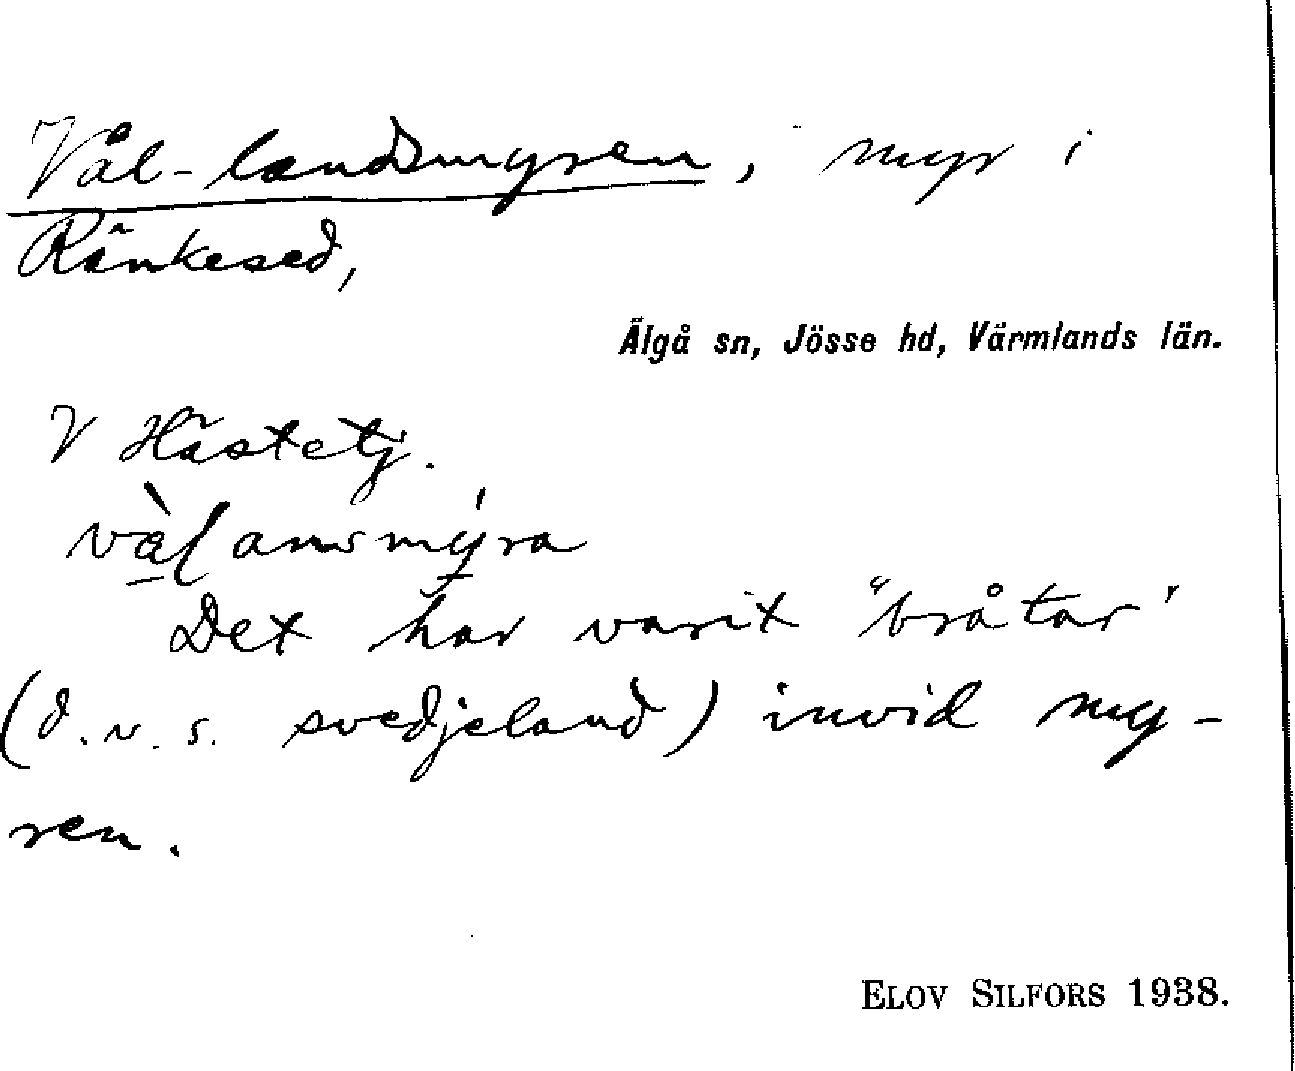 Vål-landsmyren, myr i
Ränkesed,
Älgå sn, Jösse hd, Värmlands län.
V Hästetj.
Det har varit "bråtar"
(d.v.s. svedjeland) invid my-
ren.
ELOV SILFORS 1938.